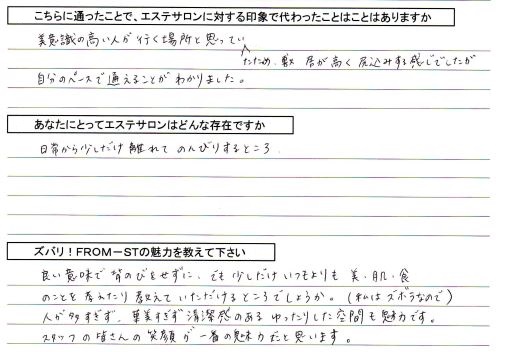 こちらに通ったことで、エステサロンに対する印象で代わったことはことはありますか
美意識の高い人が行く場所と思ってい
たため、敷居が高く尻込みする感じでしたが
自分のペースで通えることがわかりました。
あなたにとってエステサロンはどんな存在ですか
日常から少しだけ離れてのんびりするところ
ズバリ！FROM－STの魅力を教えて下さい
良い意味で背のびをせずに、でも少しだけいつもよりも美・肌・食
のことを考えたり教えていただけるところでしょうか。（私はズボラなので）
人が多すぎず、華美すぎず清潔感のあるゆったりした空間も魅力です。
スタッフの皆さんの笑顔が一番の魅力だと思います。